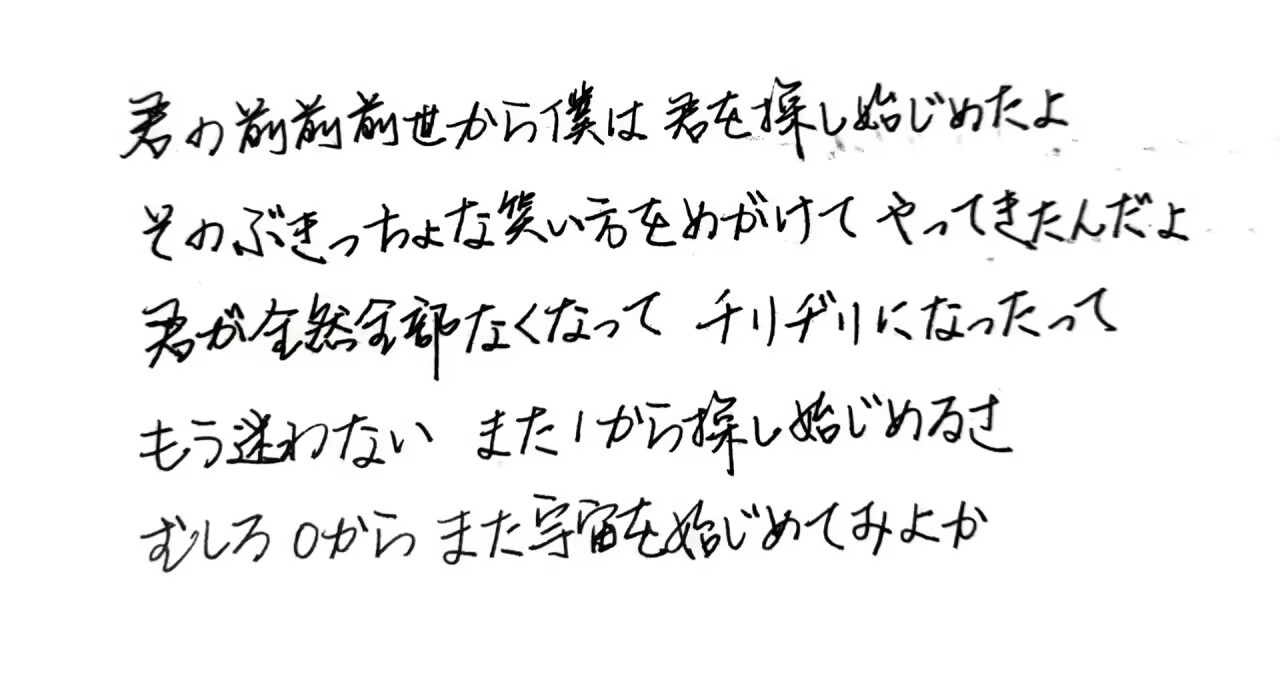 君の前前前世から僕は君を探し始じめたよ
そのぶきっちょな笑い方をめがけてやってきたんだよ
君が全然全部なくなって チリヂリになったって
もう迷わない また1から探し始じめるさ
むしろ0から また宇宙を始じめてみよか